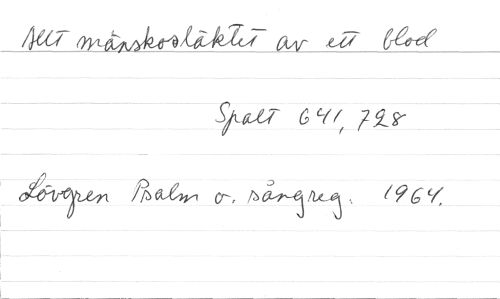 Allt mänskosläktet av ett blod
Spalt 641, 728
Lövgren Psalm o. sångreg. 1964.